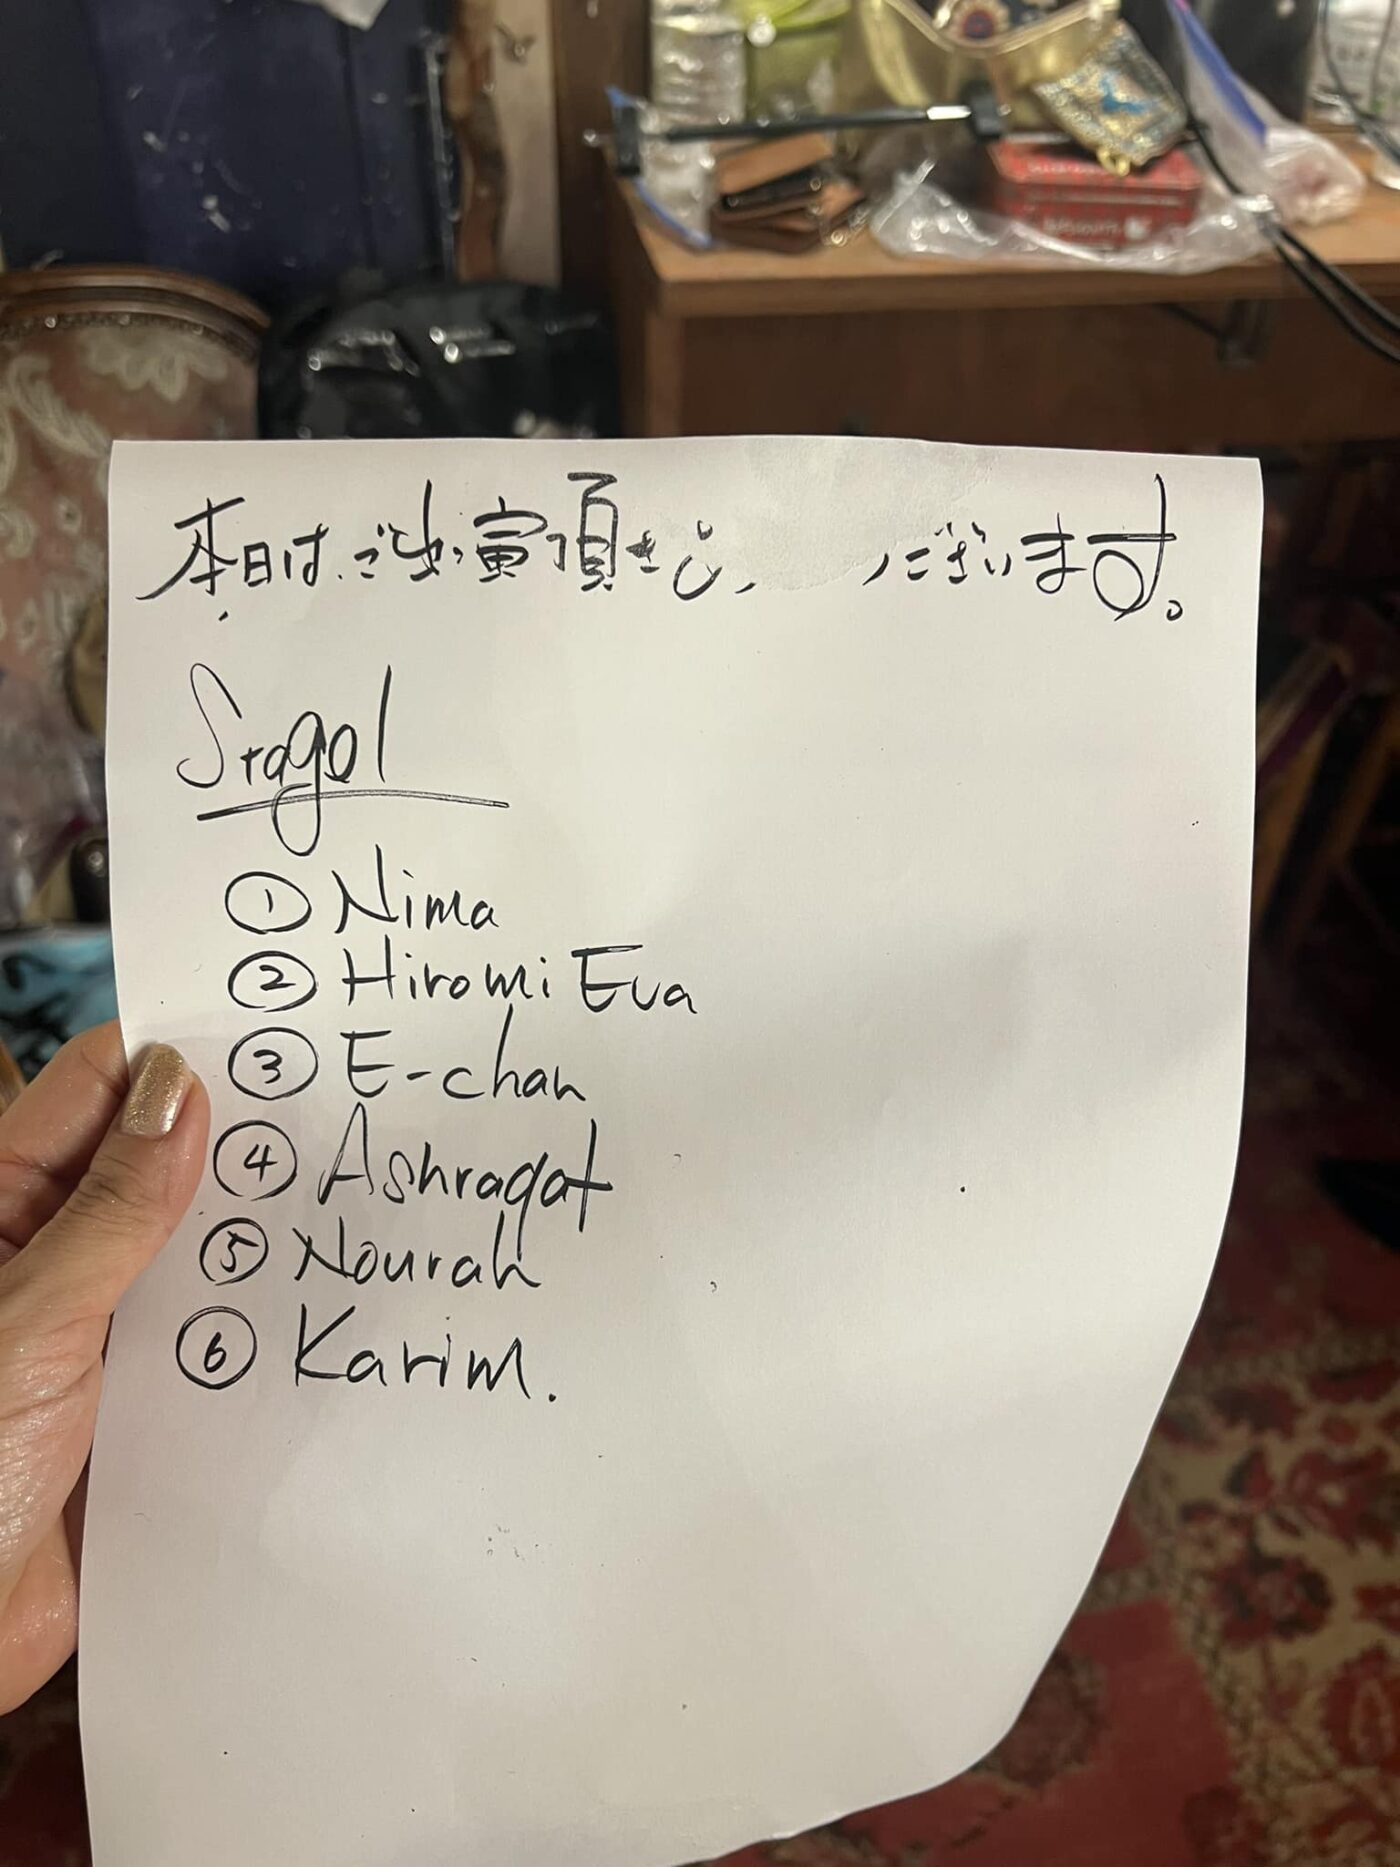 本日は、ご出演頂きまし、 ございます。
Stage1
① Nima
② Hiromi Eva
③ E-chan
④ Ashraqat
⑤ Nourah
⑥ Karim.